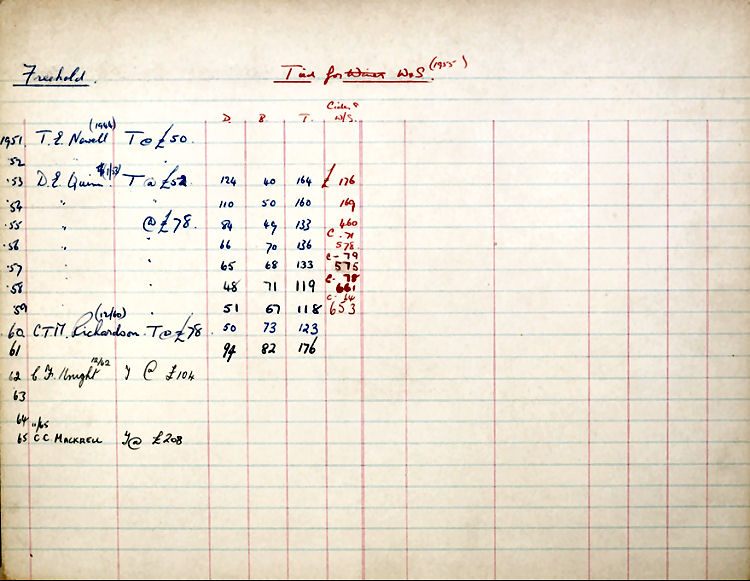 Freehold. Tied for Wines W & S. (1955)
Cider &
D. B. T. W/S.
(1946)
1951. T. E. Nowell T @ £50.
52 " "
.53 D. E. Quinn. T @ £52 124 40 164 £ 176
.54 " " 110 50 160 169
.55 " @ £78. 84 49 133 460
C. 71
.56 " " 66 70 136 578
C - 79
.57 " " 65 68 133 575
C. 78
.58 " " 48 71 119 661
C. 64
59 " " 51 67 118 653
(12/60)
.60 C.T.M. Richardson. T @ £78. 50 73 123
61 94 82 176
12/62
62 C. F. Knight T @ £104
63
64
11/65
65 C C. MACKRELL T @ £208